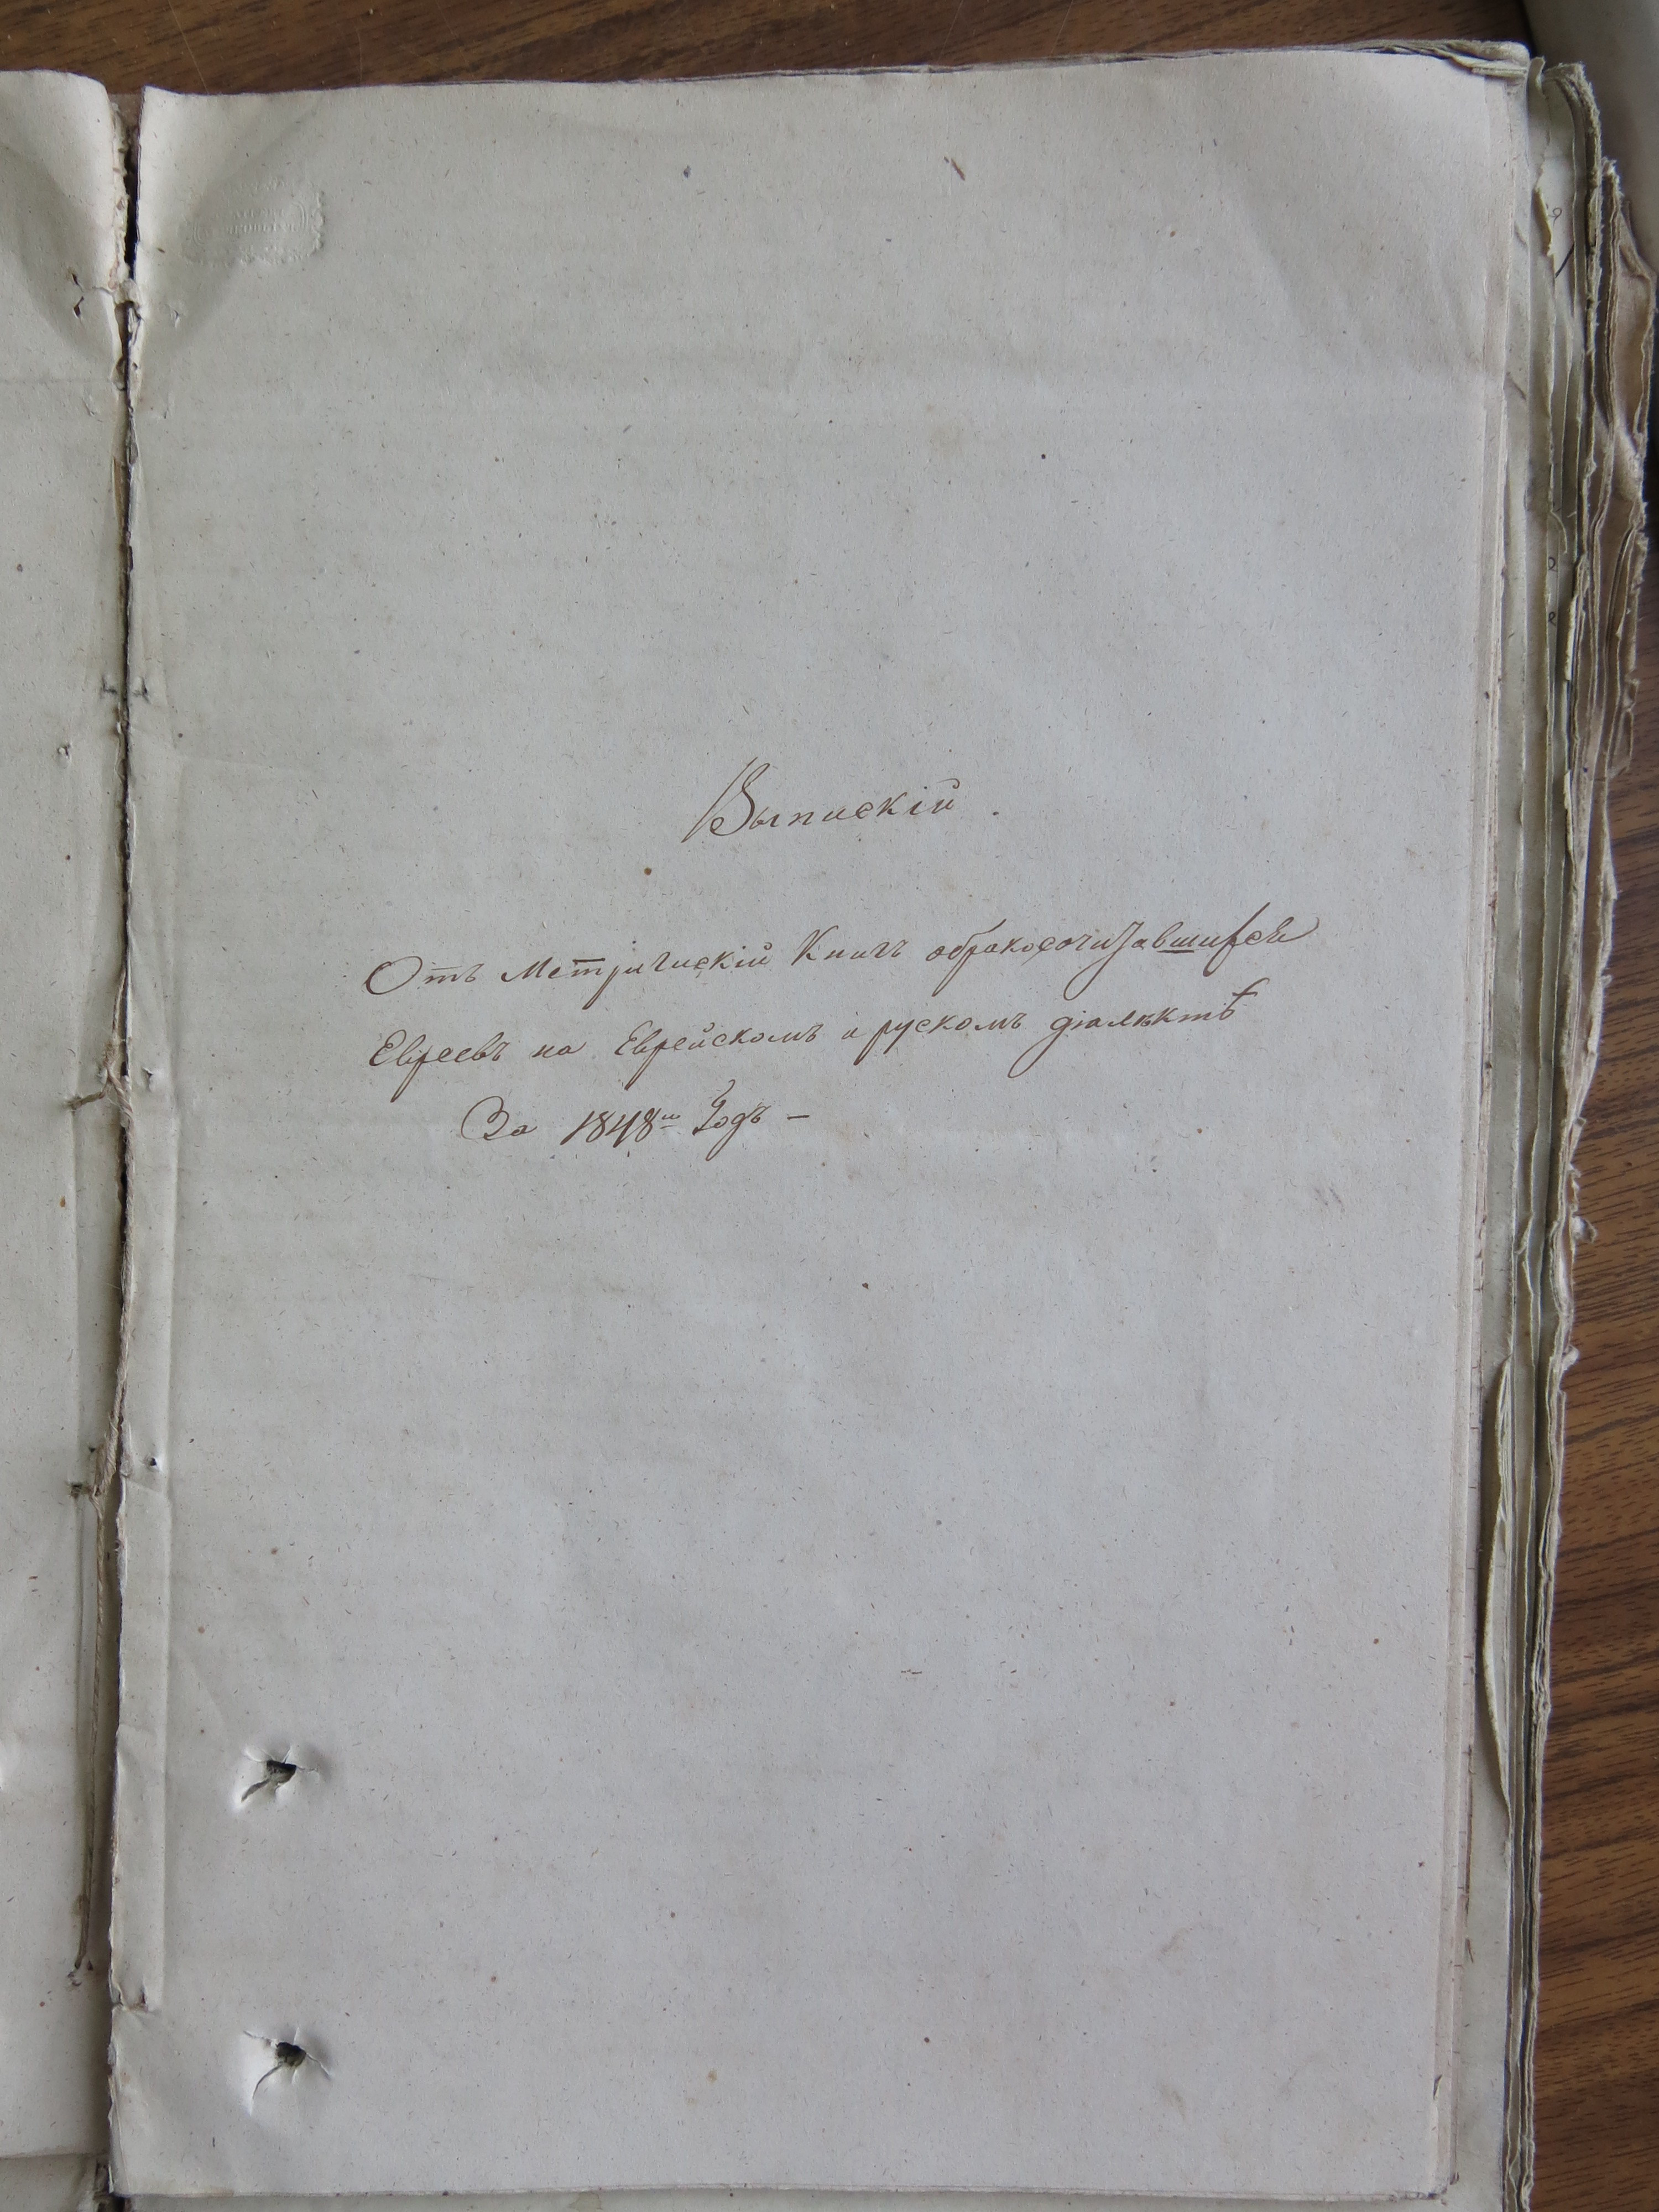 Выпискій.
Отъ Метричискій Книгъ обракосочитавшихся
Евреевъ на Еврейскомъ и рускомъ діалѣктѣ
За 1848й Годъ —